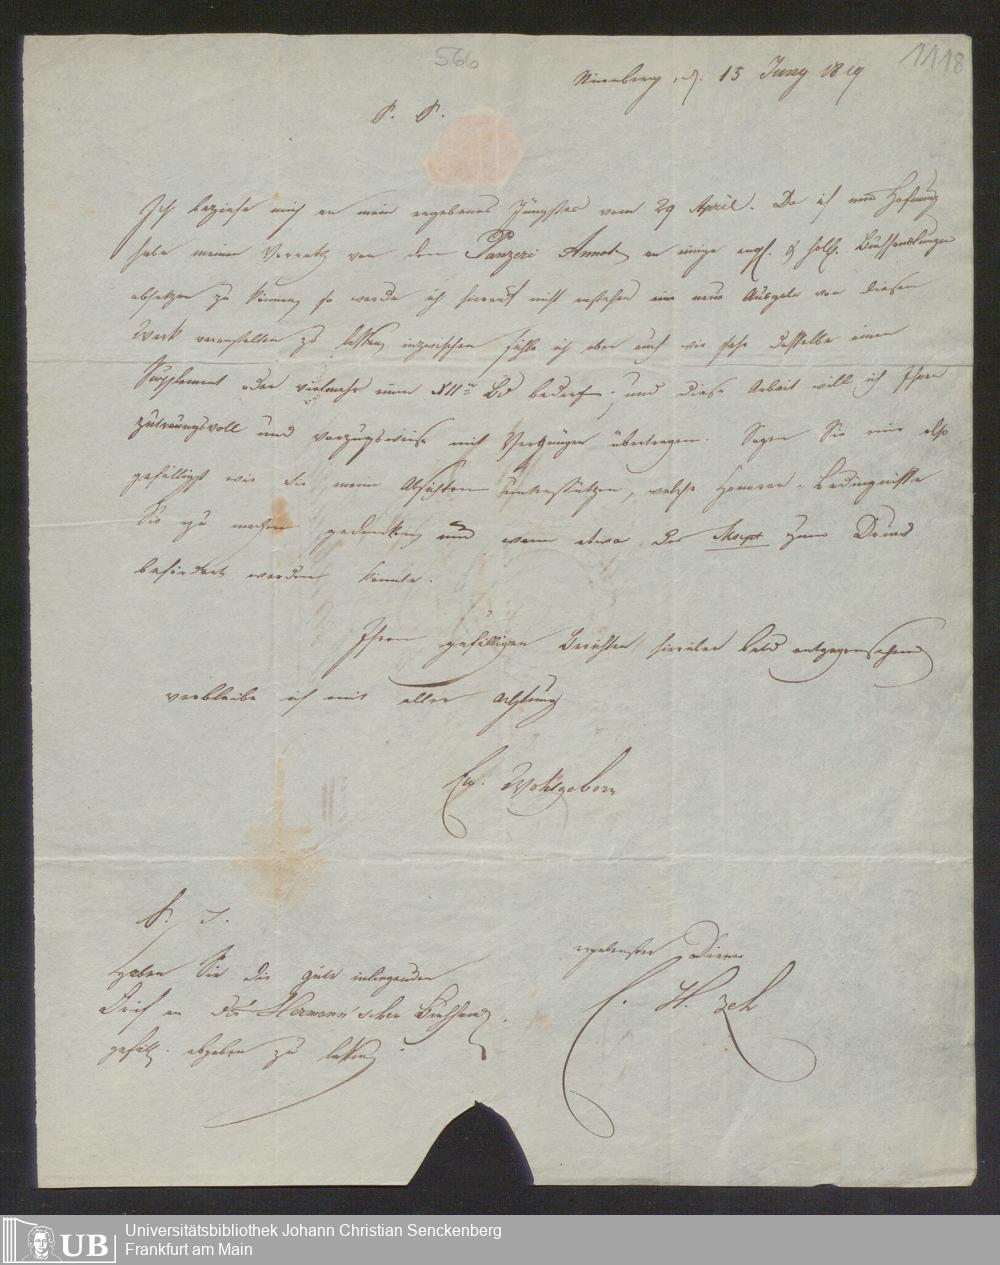 566
1118
Nürnberg, d. 15 Juny 1819
P. P.
Ich beziehe mich an mein ergebenes Jüngstes vom 29 April. Da ich nun Hofnung
habe meinen Vorrath von den Panzeri Annal. an einige engl. & holl. Buchhandlungen
absetzen zu können, so werde ich hierauf nicht anstehen eine neue Ausgabe von diesem
Werk veranstalten zu lassen, inzwischen fühle ich aber auch wie sehr dasselbe einen
Supplement oder vielmehr einen XIIn Bd bedarf; und diese Arbeit will ich Ihnen
zutrauungsvoll und vorzugsweise mit Vergnügen übertragen. Sagen Sie mir also
gefälligst wie Sie meine Absichten unterstützen, welche Honorar-Bedingnisse
Sie zu machen gedenken und wann etwa das Mscpt zum Druck
befördert werden könnte.
Ihren gefälligen Berichten hierüber bald entgegensehend
verbleibe ich mit aller Achtung
Ew. Wohlgeborn
P. S.
ergebenster Diener
Haben Sie die Güte inliegenden
C. H. Zeh
Brief an die Hermann'schen Buchhandg.
gefäll. abgeben zu lassen.
UB
Universitätsbibliothek Johann Christian Senckenberg
Frankfurt am Main